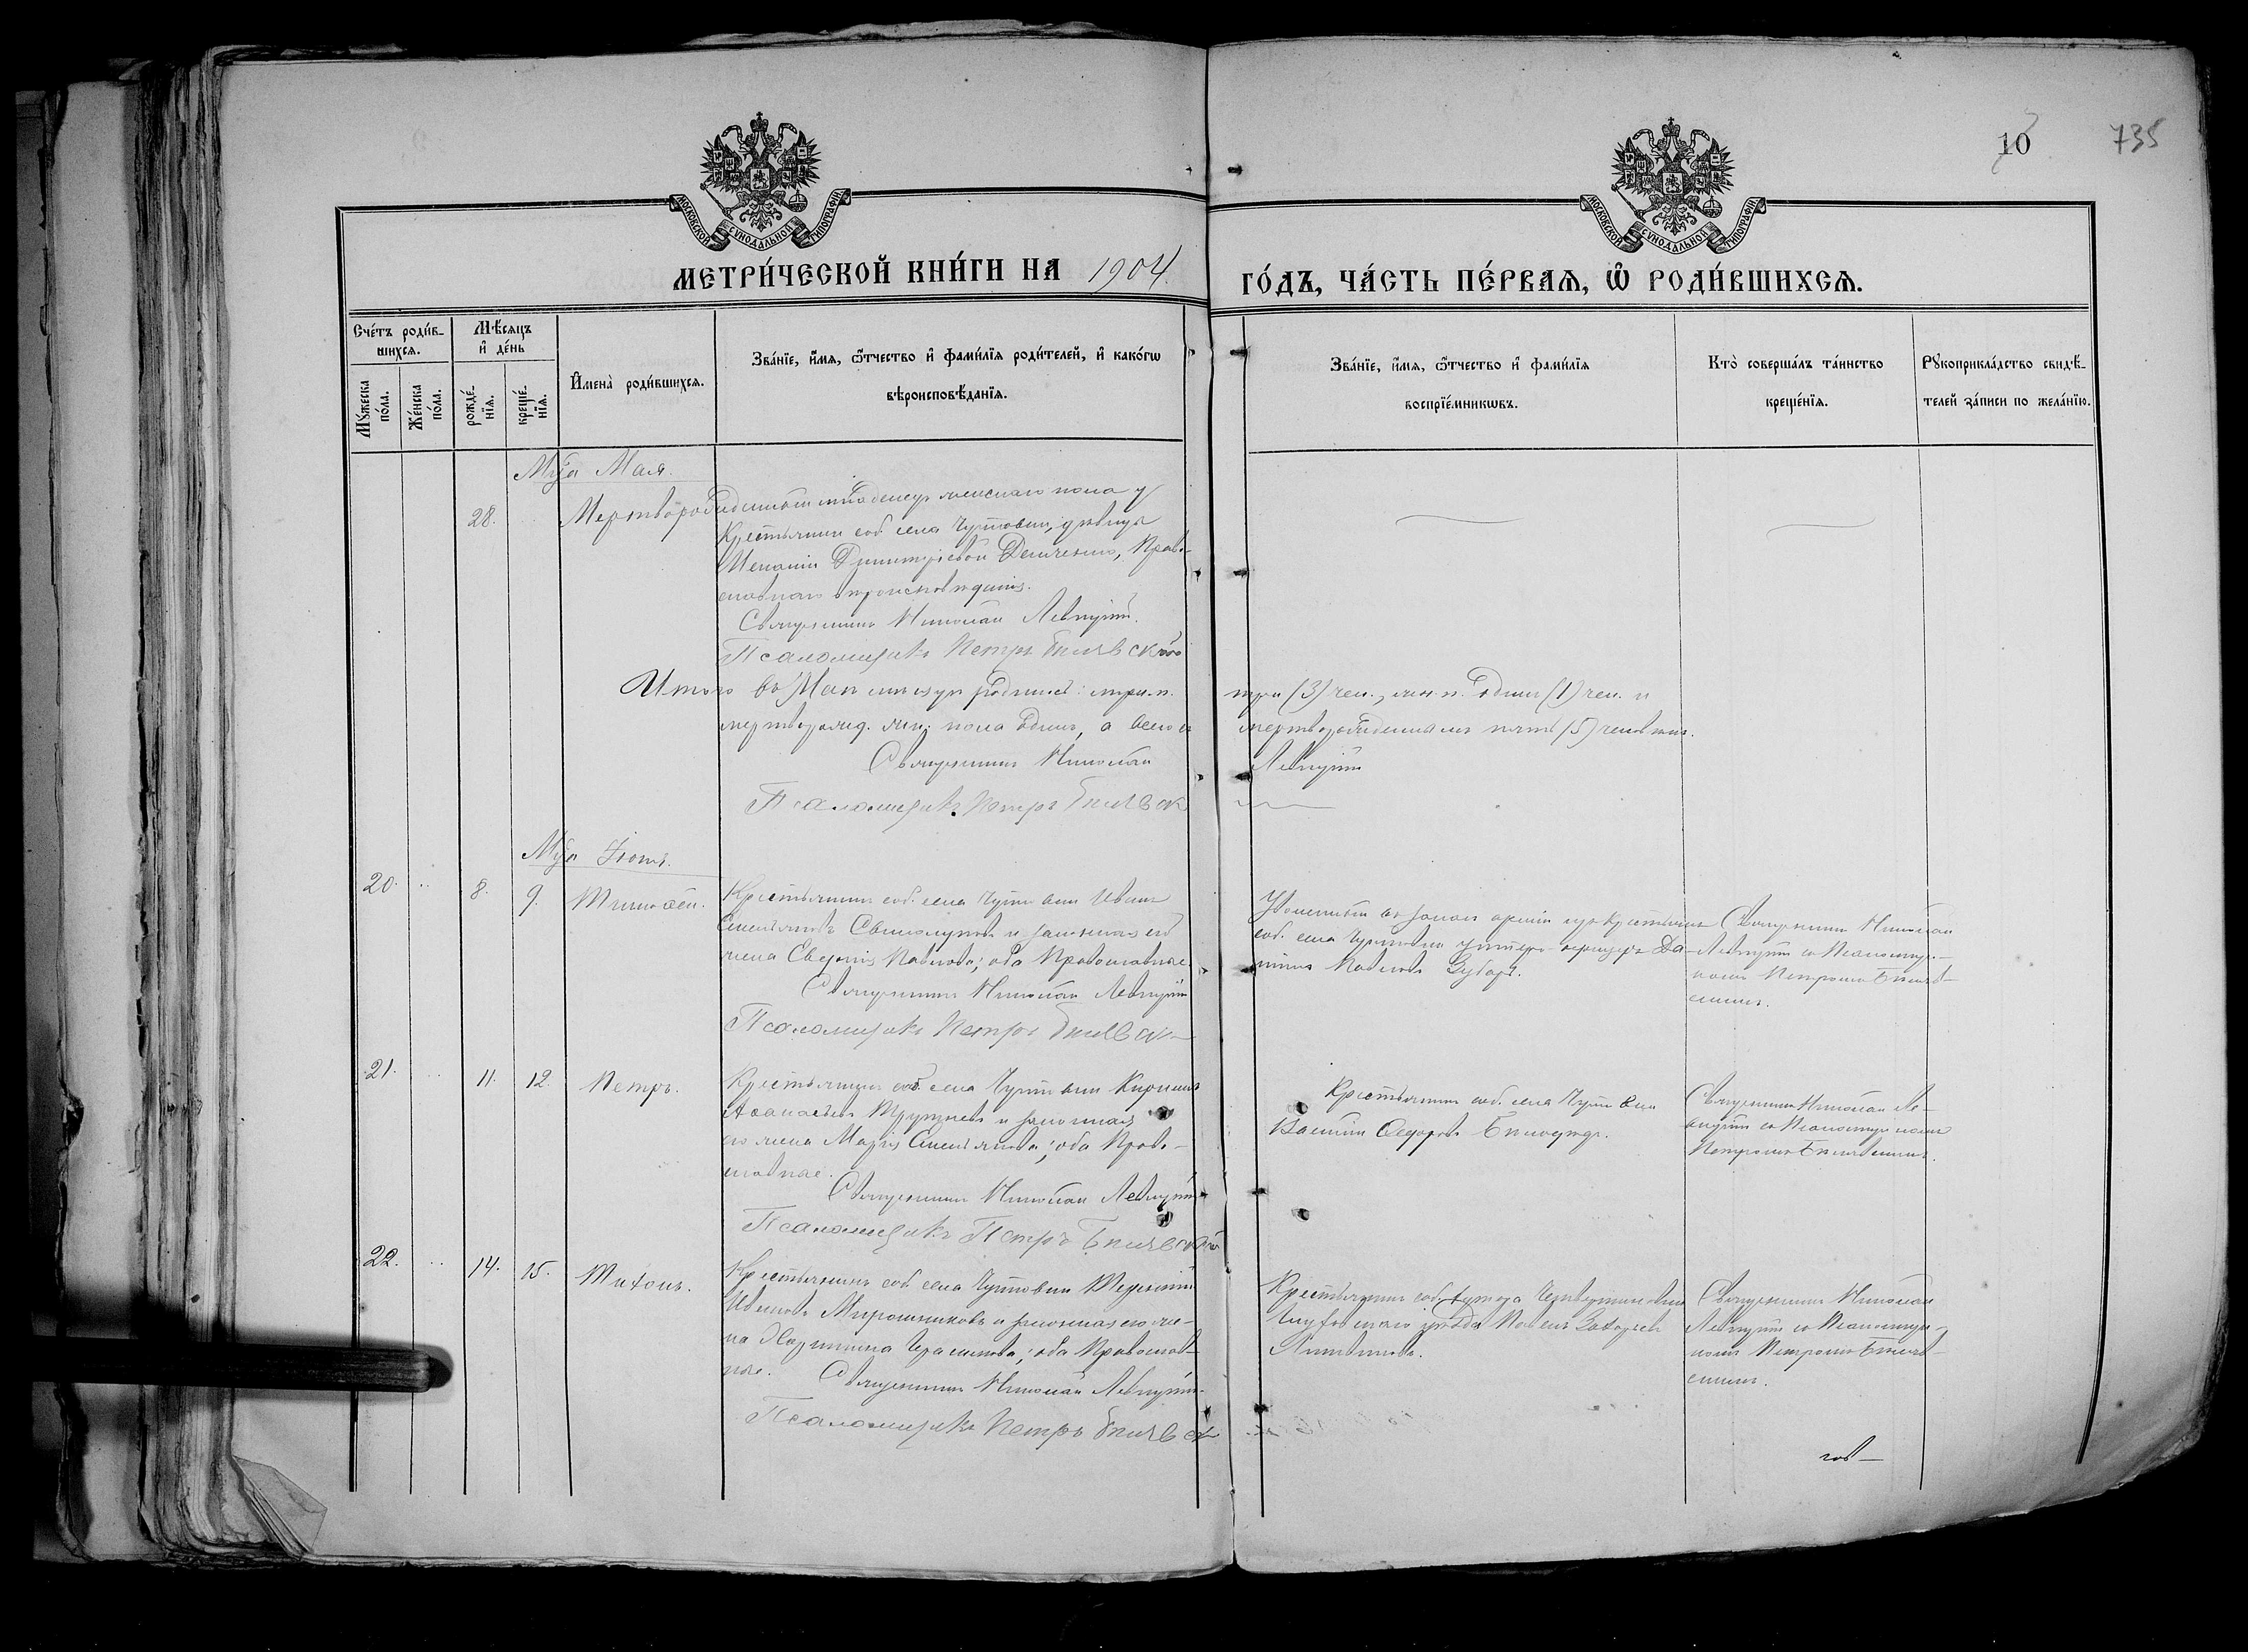 10
735
МОСКОВСКОЙ СѴНОДАЛЬНОЙ ТИПОГРАФІИ
МОСКОВСКОЙ СѴНОДАЛЬНОЙ ТИПОГРАФІИ
МЕТРИ́ЧЕСКОЙ КНИ́ГИ НА 1904.
ГО́ДЪ, ЧА́СТЬ ПЕ́РВАѦ, Ѡ҆ РОДИ́ВШИХСѦ.
Сче́тъ роди́в-
шихсѧ.
Мѣ́сѧцъ
и҆ де́нь
Мꙋ́жеска
по́ла.
Же́нска
по́ла.
рожде́-
нїѧ.
креще́-
нїѧ.
И҆мена̀ роди́вшихсѧ.
Зва́нїе, и҆́мѧ, ѻ҆́тчество и҆ фами́лїѧ роди́телей, и҆ како́гѡ
вѣроисповѣ́данїѧ.
Зва́нїе, и҆́мѧ, ѻ҆́тчество и҆ фами́лїѧ
воспрїе́мникѡвъ.
Кто̀ соверша́лъ та́инство
креще́нїѧ.
Рꙋкоприкла́дство свидѣ́-
телей за́писи по жела́нїю.
Мца Мая.
28. Мертворожденный младенецъ женскаго пола у
Крестьянки соб. села Чутовки, девицы
Меланіи Димитріевой Демченко, Право-
славнаго вѣроисповѣданія.
Священникъ Николай Левицкій.
Псаломщикъ Петръ Бѣлявскій
Итого въ Маѣ мѣсяцѣ родилось: муж. п.
три (3) чел., жен. п. одинъ (1) чел. и
мерторожд. жен. пола одинъ, а всего съ
мертворожденнымъ пять (5) человѣкъ.
Священникъ Николай
Левицкій
Псаломщикъ Петръ Бѣлявск
Мца Іюнь.
20. 8. 9. Тимофей.
Крестьянинъ соб. села Чутовки Иванъ
Емельяновъ и законная его
жена Павлова; оба Православные
Священникъ Николай Левицкій
Псаломщикъ Петръ Бѣлявск
Уволенный въ запасъ арміи изъ крестьянъ
соб. села Чутовки унтеръ-офицеръ Да-
Павловъ Зубарь.
Священникъ Николай
Левицкій съ Псаломщи-
комъ Петромъ Бѣляв-
скимъ.
21. 11. 12. Петръ.
Крестьянинъ соб. села Чутовки Кириллъ
и законная
его жена Марія Емельянова; оба Право-
славные.
Священникъ Николай Левицкій
Псаломщикъ Петръ Бѣлявскій
Крестьянинъ соб. села Чутовки
Василій Ѳедоровъ
Священникъ Николай Ле-
вицкій съ Псаломщикомъ
Петромъ Бѣлявскимъ.
22. 14. 15. Тихонъ.
Крестьянинъ соб. села Чутовки
Ивановъ Мирошниковъ и законная его же-
на Герасимова; оба Православ-
ные. Священникъ Николай Левицкій
Псаломщикъ Петръ Бѣлявск
Крестьянинъ соб. хутора
уѣзда Павелъ
Литвиновъ.
Священникъ Николай
Левицкій съ Псаломщи-
комъ Петромъ Бѣляв-
скимъ.